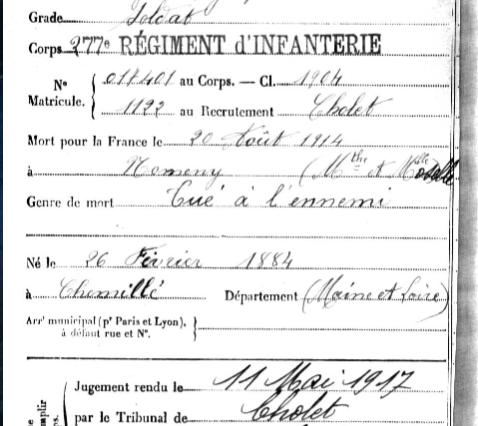 Grade Soldat
Corps 277e RÉGIMENT d'INFANTERIE
No 017401 au Corps. — Cl. 1904
Matricule. 1122 au Recrutement Cholet
Mort pour la France le 20 Août 1914
à Nomeny (Mthe et Moselle
Genre de mort Tué à l'ennemi
Né le 26 Février 1884
à Chemillé Département (Maine et Loire)
Arrt municipal (pr Paris et Lyon),
à défaut rue et No.
Jugement rendu le 11 Mai 1917
par le Tribunal de Cholet